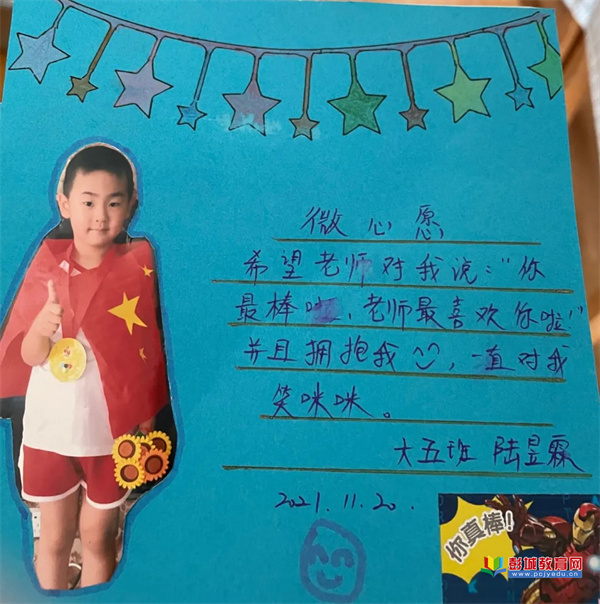 微心愿
希望老师对我说:"你
最棒啦,老师最喜欢你啦"
并且拥抱我,一直对我
笑咪咪。
大五班 陆昱霖
2021.11.20.
你真棒!
彭城教育网
www.pcjyedu.cn